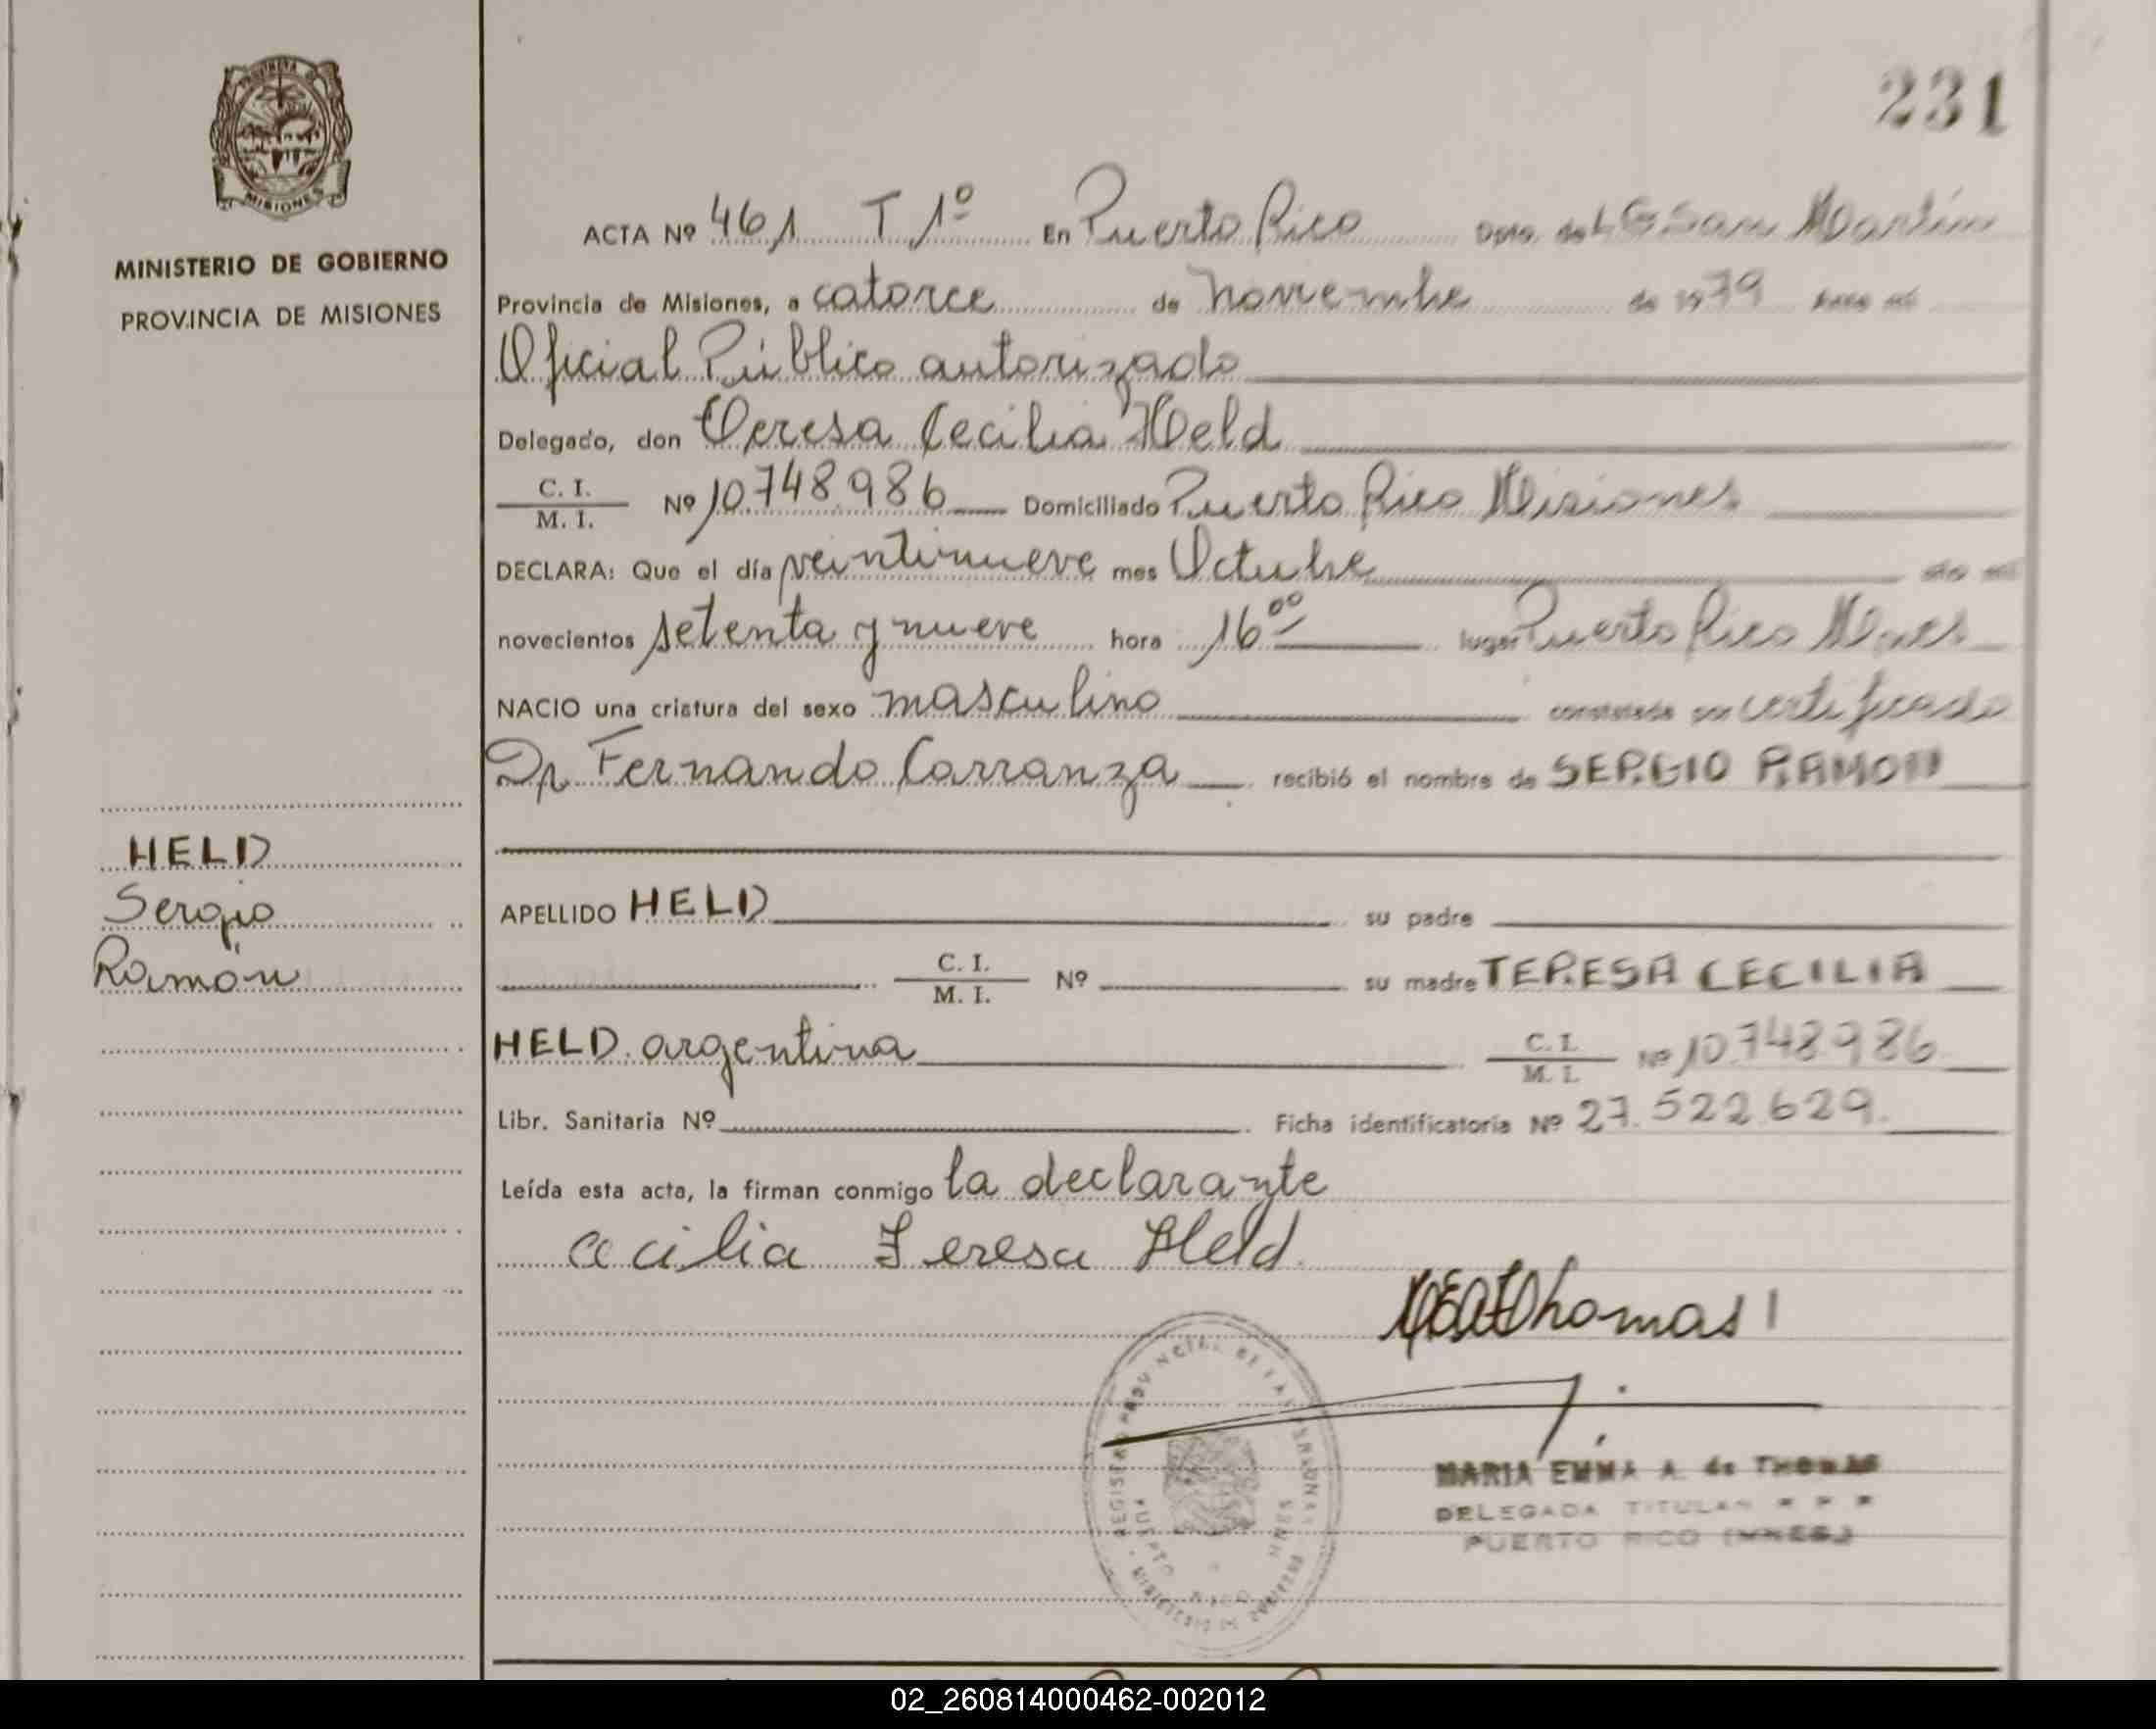 231
PROVINCIA DE
MISIONES
MINISTERIO DE GOBIERNO
PROVINCIA DE MISIONES
HELD
Sergio
Ramón
ACTA Nº 461 T 1º En Puerto Rico Dpto. de L G San Martín
Provincia de Misiones, a catorce de noviembre de 1979 Ante mí
Oficial Público autorizado
Delegado, don Teresa Cecilia Held
C. I.
M. I. Nº 10.748.986 Domiciliado Puerto Rico Misiones
DECLARA: Que el día veintinueve mes Octubre de mil
novecientos setenta y nueve hora 16⁰⁰ lugar Puerto Rico Mnes
NACIO una criatura del sexo masculino constatada por certificado
Dr Fernando Carranza recibió el nombre de SERGIO RAMON
APELLIDO HELD su padre
C. I.
M. I. Nº su madre TERESA CECILIA
HELD argentina C. I.
M. I. Nº 10748986
Libr. Sanitaria Nº Ficha identificatoria Nº 27.522.629.
Leída esta acta, la firman conmigo la declarante
Cecilia Teresa Held
Thomas
REGISTRO PROVINCIAL DE LAS PERSONAS
PUERTO RICO
MINISTERIO DE GOBIERNO
MARIA EMMA A. de THOMAS
DELEGADA TITULAR R P P
PUERTO RICO (MNES.)
02_260814000462-002012